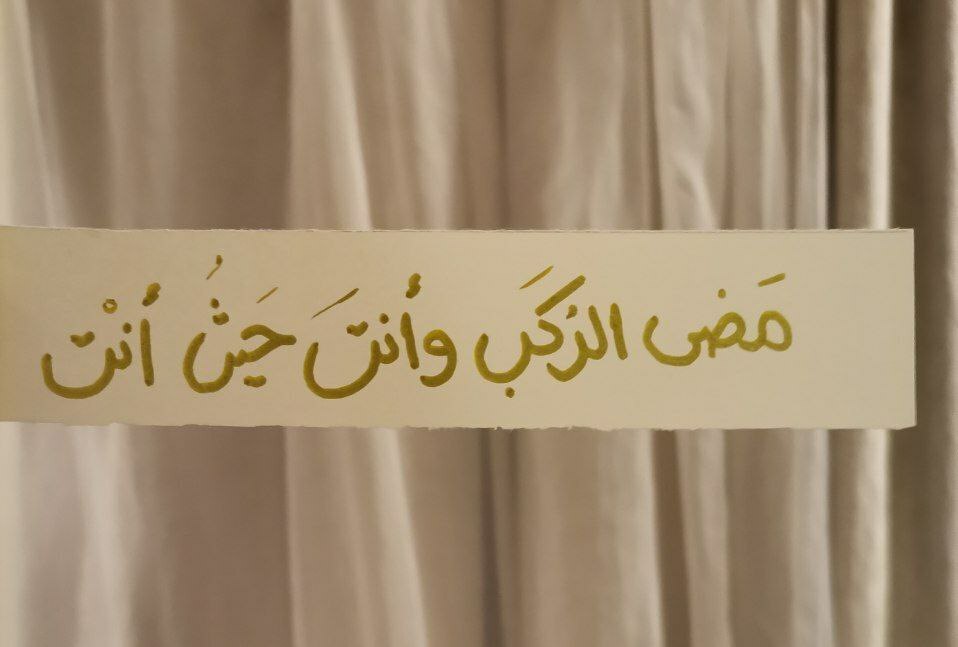 مَضى الرَكبَ وأنتَ حَيثُ أنتْ